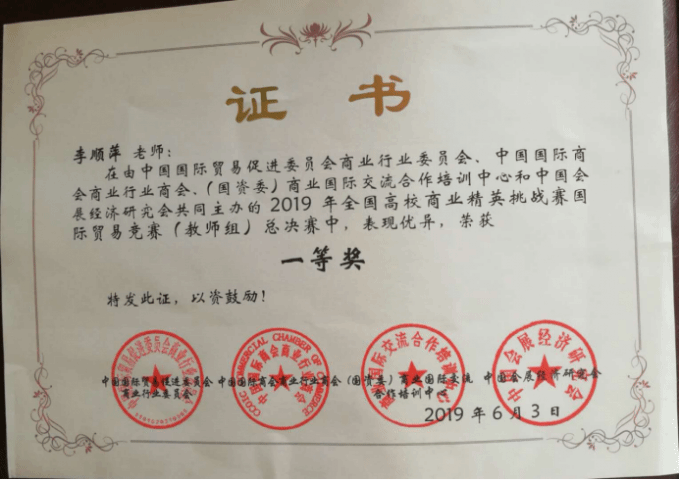 证 书
李顺萍 老师：
在由中国国际贸易促进委员会商业行业委员会、中国国际商
会商业行业商会、（国资委）商业国际交流合作培训中心和中国会
展经济研究会共同主办的 2019 年全国高校商业精英挑战赛国
际贸易竞赛（教师组）总决赛中，表现优异，荣获
一等奖
特发此证，以资鼓励！
CCOIC COMMERCIAL CHAMBER OF COMMERCE
中国国际商会商业行业商会
国际交流合作培训中心
中国会展经济研究会
中国国际贸易促进委员会 中国国际商会商业行业商会 （国资委）商业国际交流 中国会展经济研究会
商业行业委员会 合作培训中心
2019 年 6 月 3 日